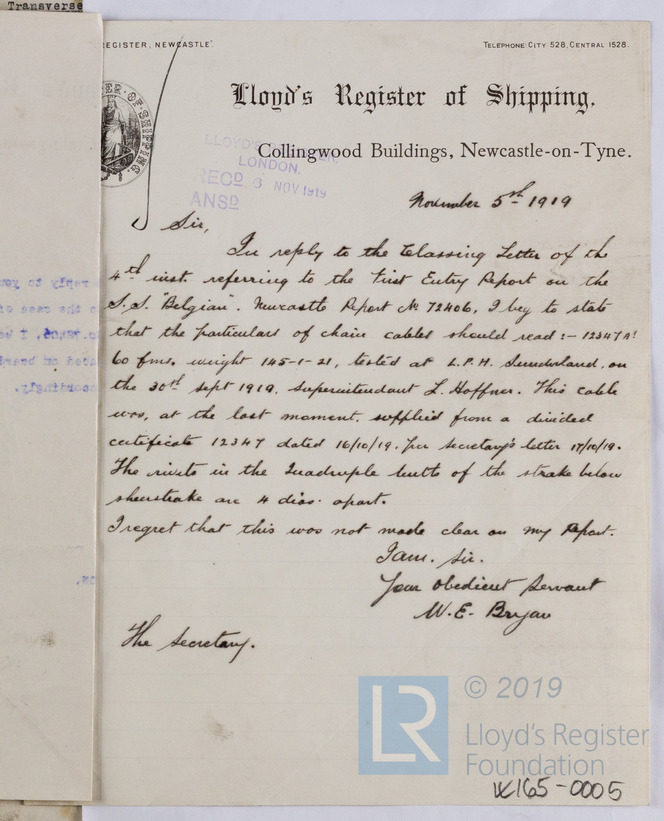 Transverse
REGISTER, NEWCASTLE".
TELEPHONE: CITY 528, CENTRAL 1528.
Lloyd's Register of Shipping,
Collingwood Buildings, Newcastle-on-Tyne.
LLOYD'S REGISTER,
LONDON.
RECD 6 NOV 1919
ANSD
November 5th 1919
Sir,
In reply to the Classing Letter of the
4th inst. referring to the First Entry Report on the
S.S. "Belgian". Newcastle Report No 72406, I beg to state
that the particulars of chain cables should read :- 12347
60 fms. weight 145-1-21, tested at L.P.H. Sunderland, on
the 30th Sept 1919. Superintendant L. Hoffner. This cable
was, at the last moment, supplied from a divided
certificate 12347 dated 16/10/19. per Secretary's letter 17/10/19.
The rivets in the Quadruple butts of the strake below
sheerstrake are 4 dias. apart.
I regret that this was not made clear on my Report.
I am. Sir.
Your Obedient Servant
W. E. Bryan
The Secretary.
LR © 2019
Lloyd's Register
Foundation
W165-0005